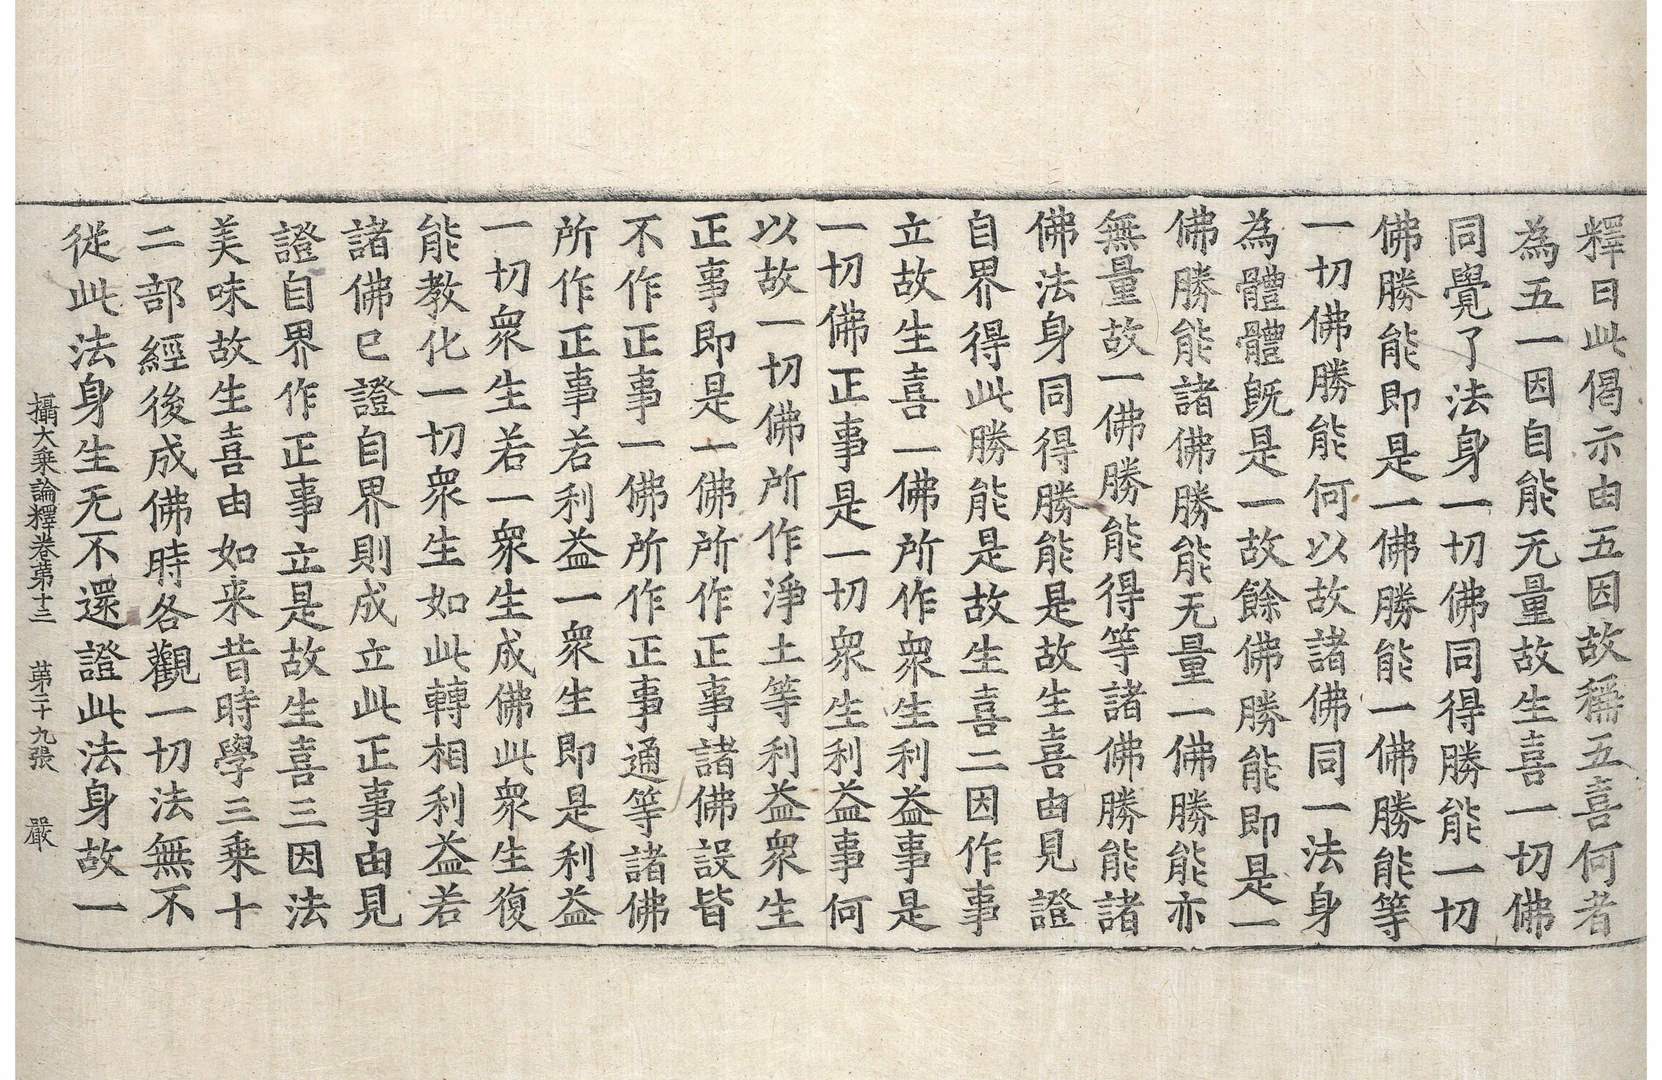 釋曰此偈示由五因故稱五喜何者
為五一因自能无量故生喜一切佛
同覺了法身一切佛同得勝能一切
佛勝能即是一佛勝能一佛勝能等
一切佛勝能何以故諸佛同一法身
為體體旣是一故餘佛勝能即是一
佛勝能諸佛勝能无量一佛勝能亦
無量故一佛勝能得等諸佛勝能諸
佛法身同得勝能是故生喜由見證
自界得此勝能是故生喜二因作事
立故生喜一佛所作衆生利益事是
一切佛正事是一切衆生利益事何
以故一切佛所作淨土等利益衆生
正事即是一佛所作正事諸佛設皆
不作正事一佛所作正事通等諸佛
所作正事若利益一衆生即是利益
一切衆生若一衆生成佛此衆生復
能教化一切衆生如此轉相利益若
諸佛已證自界則成立此正事由見
證自界作正事立是故生喜三因法
美味故生喜由如来昔時學三乗十
二部經後成佛時各觀一切法無不
從此法身生无不還證此法身故一
攝大乗論釋卷第十三 第二十九張 嚴